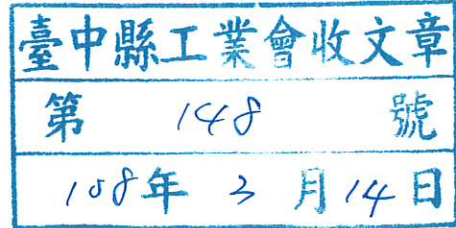 臺中縣工業會收文章
第 148 號
108年 3 月 14 日